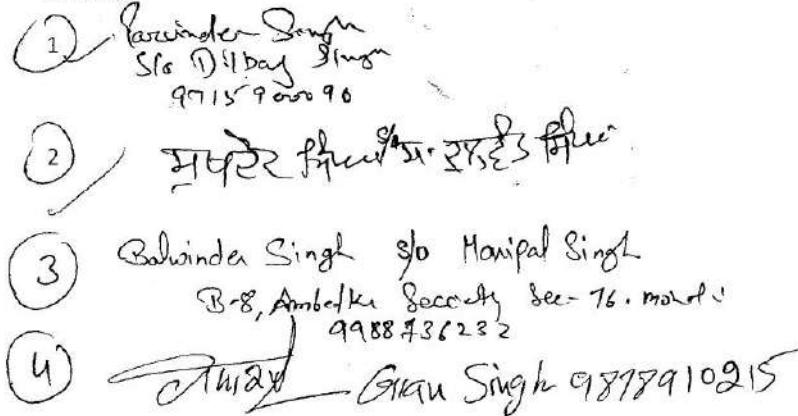 1 Parvinder Singh
S/o Dilbag Singh
9715900090
2 ਸੁਖਦੇਵ ਸਿੰਘ S/o ਸ. ਕੁਲਵੰਤ ਸਿੰਘ
3 Balwinder Singh S/o Manipal Singh
B-8, Ambedkr Society Sec- 76. mohali
9988736232
4 Gian Singh 9878910215